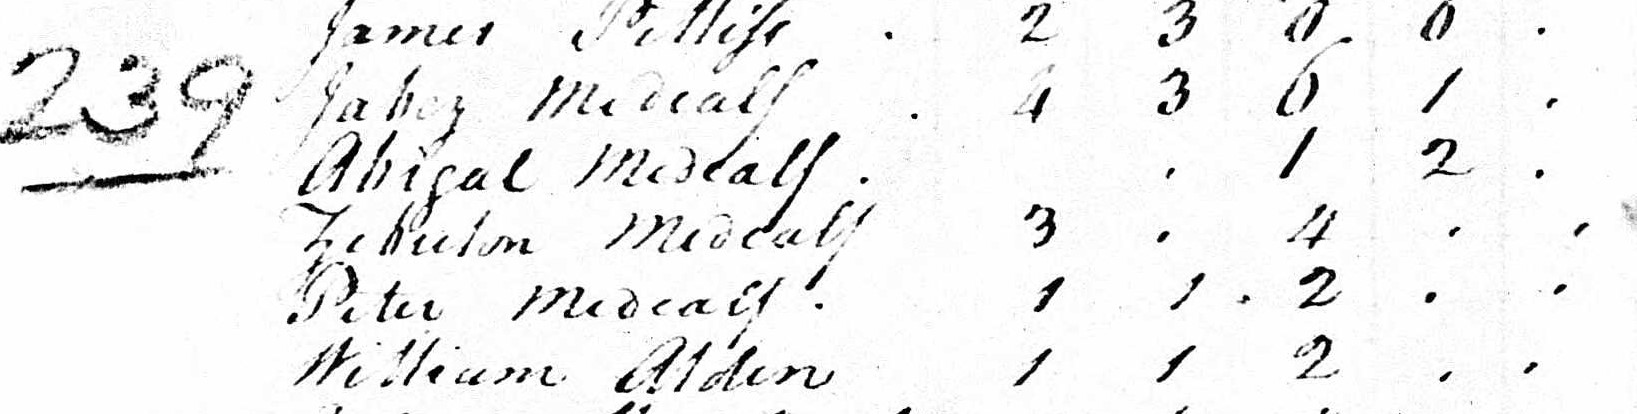 James Pettiss . 2 3 0 0 .
239
Jabez Medcalf . 4 3 6 1 .
Abigal Medcalf . . 1 2 .
Zebulon Medcalf 3 . 4 . .
Peter Medcalf . 1 1 . 2 . .
William Alden 1 1 2 . .